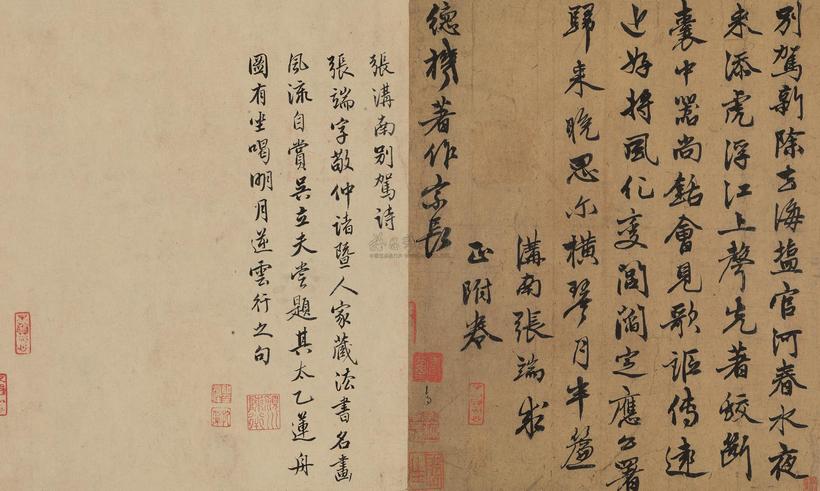 別駕新除去海塩官河春水夜
來添虎浮江上聲先著蛟斷
囊中器尚銛會見歌謳傳遠
近好將風化變閭閻定應公署
歸來晚思尔橫琴月半簷
德機著作宗長
溝南張端求
正附卷
張溝南別駕詩
張端字敬仲諸暨人家藏法書名畫
風流自賞吳立夫嘗題其太乙蓮舟
圖有坐喝明月逆雲行之句